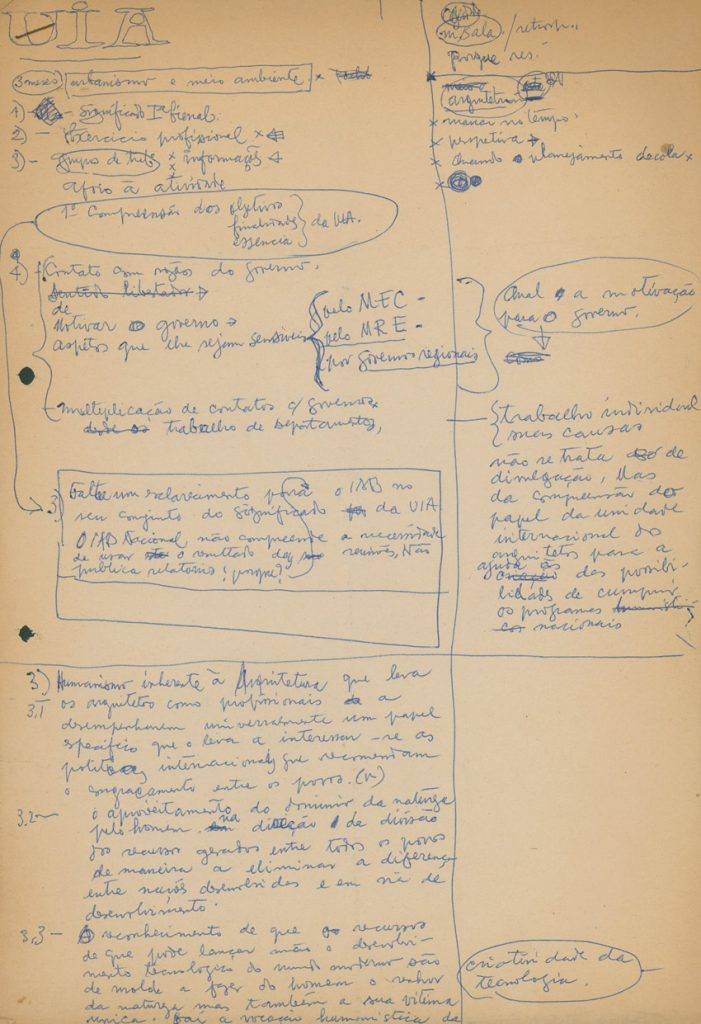 UIA
3 meses urbanismo e meio ambiente. x
1) - Significado Iª bienal.
2) - Exercício profissional x
3) - Grupos de trab. x informações
apoio à atividade
1º Compreensão dos objetivos
finalidades
essencia
da UIA.
4) Contato com orgãos do governo.
sentido libertador
de
Motivar o governo
aspetos que lhe sejam sensíveis
pelo MEC -
pelo MRE -
por governos regionais
- multiplicação de contatos c/ governos x
trabalho de Departamentos,
3) Falta um esclarecimento para o IAB no
seu conjunto do significado da UIA
O IAB Nacional não compreende a necessidade
de usar o resultado das reuniões, Não
publica relatorios! porque?
m Sala. / retrosp.
porque res.
arquitetura
x marcar no tempo.
x perspetiva
x Quando o planejamento decola x
x
Qual é a motivação
para o governo.
como
trabalho individual
suas causas
não se trata de
divulgação, Mas
da compreensão do
papel da unidade
internacional dos
arquitetos para a
ajuda às
criação das possibi-
lidades de cumprir
os programas
nacionais
3) Humanismo inherente à Arquitetura que leva
3,1 os arquitetos como profissionais a
desempenharem universalmente um papel
específico que o leva a interessar-se as
politicas internacionais que recomendam
o congraçamento entre os povos. (v)
3.2 - o aproveitamento do dominio da natureza
pelo homem na direção da divisão
dos recursos gerados entre todos os povos
de maneira a eliminar a diferença
entre nações desenvolvidas e em via de
desenvolvimento.
3,3 - O reconhecimento de que os recursos
de que pode lançar mão o desenvolvi-
mento tecnologico do mundo moderno são
de molde a fazer do homem o senhor
da natureza mas também a sua vitima
unica. Daí a vocação humanistica da
criatividade da
tecnologia.